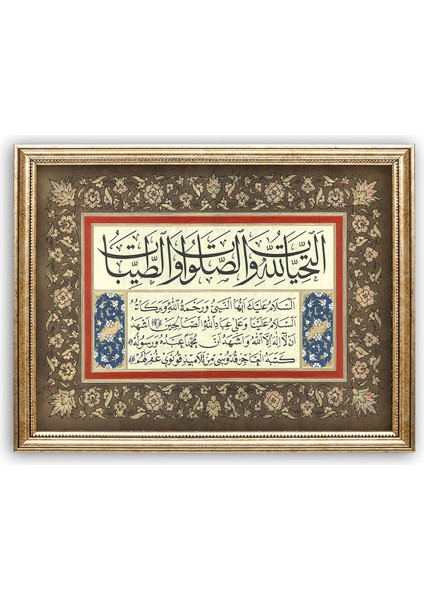 التَّحِيَّاتُ لِلّٰهِ وَالصَّلَوَاتُ وَالطَّيِّبَاتُ
السَّلَامُ عَلَيْكَ اَيُّهَا النَّبِيُّ وَرَحْمَةُ اللّٰهِ وَبَرَكَاتُهُ
السَّلَامُ عَلَيْنَا وَعَلَى عِبَادِ اللّٰهِ الصَّالِحِينَ اَشْهَدُ
اَنْ لَا اِلٰهَ اِلَّا اللّٰهُ وَاَشْهَدُ اَنَّ مُحَمَّدًا عَبْدُهُ وَرَسُولُهُ
كتبه العاجز من تلاميذ قونوي غفر لهم